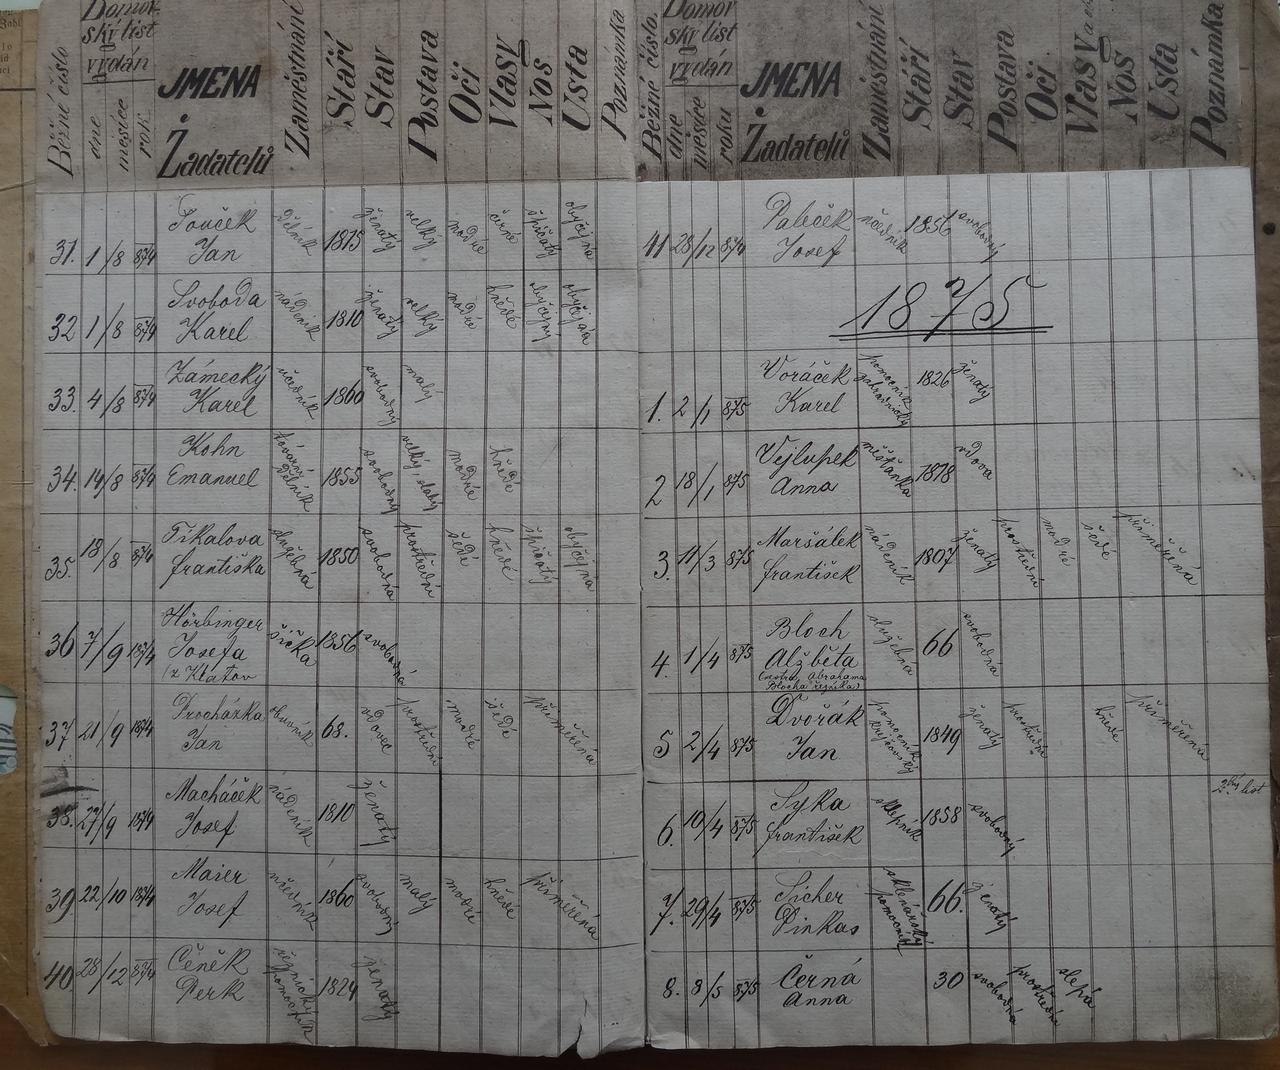 Běžné číslo.
Domov-
ský list
vydán
dne
měsíce
rok
JMÉNA
Žadatelů
Zaměstnání
Stáří
Stav
Postava
Oči
Vlasy
Nos
Ústa
Poznámka
31. 1/8 874 Souček Jan dělník 1815 ženatý velký modré černé špičatý obyčejná
32 1/8 874 Svoboda Karel nádeník 1810 ženatý velký modré hnědé obyčejný obyčejná
33. 4/8 874 Zámecký Karel učedník 1860 svobodný malý
34. 14/8 874 Kohn Emanuel tovární dělník 1855 svobodný velký, slabý modré hnědé
35. 18/8 874 Tikalova Františka služebná 1850 svobodná prostřední šedé hnědé špičatý obyčejná
36 7/9 1874 Hörbinger Josefa
(z Klatov šička 1856 svobodná
37. 21/9 1874 Procházka Jan obuvník 68. vdovec prostřední modré šedé přiměřená
38. 27/9 1874 Macháček Josef nádeník 1810 ženatý
39. 22/10 1874 Maier Josef učedník 1860 svobodný malý modré hnědé přiměřená
40 28/12 874 Čeněk Perk řeznický pomocník 1824 ženatý
Běžné číslo.
Domov-
ský list
vydán
dne
měsíce
roku
JMÉNA
Žadatelů
Zaměstnání
Stáří
Stav
Postava
Oči
Vlasy
Nos
Ústa
Poznámka
41 28/12 874 Paleček Josef učedník 1856 svobodný
1875
1. 2/1 875 Voráček Karel pomocník zahradnický 1826 ženatý
2 18/1 875 Vejlupek Anna měšťanka 1818 vdova
3. 11/3 875 Maršálek František nádeník 1807 ženatý prostřední modré šedé přiměřená
4. 1/4 875 Bloch Alžběta
(sestra Abrahama
Blocha řezníka) služebná 66 svobodná
5 2/4 875 Dvořák Jan pomocník krejčovský 1849 ženatý prostřední hnědé přiměřená
6. 10/4 875 Syka František sklepník 1858 svobodný 2hý list
7. 29/4 875 Sicher Pinkas sklenářský pomocník 66. ženatý
8. 8/5 875 Černá Anna 30 svobodná prostřední slepá